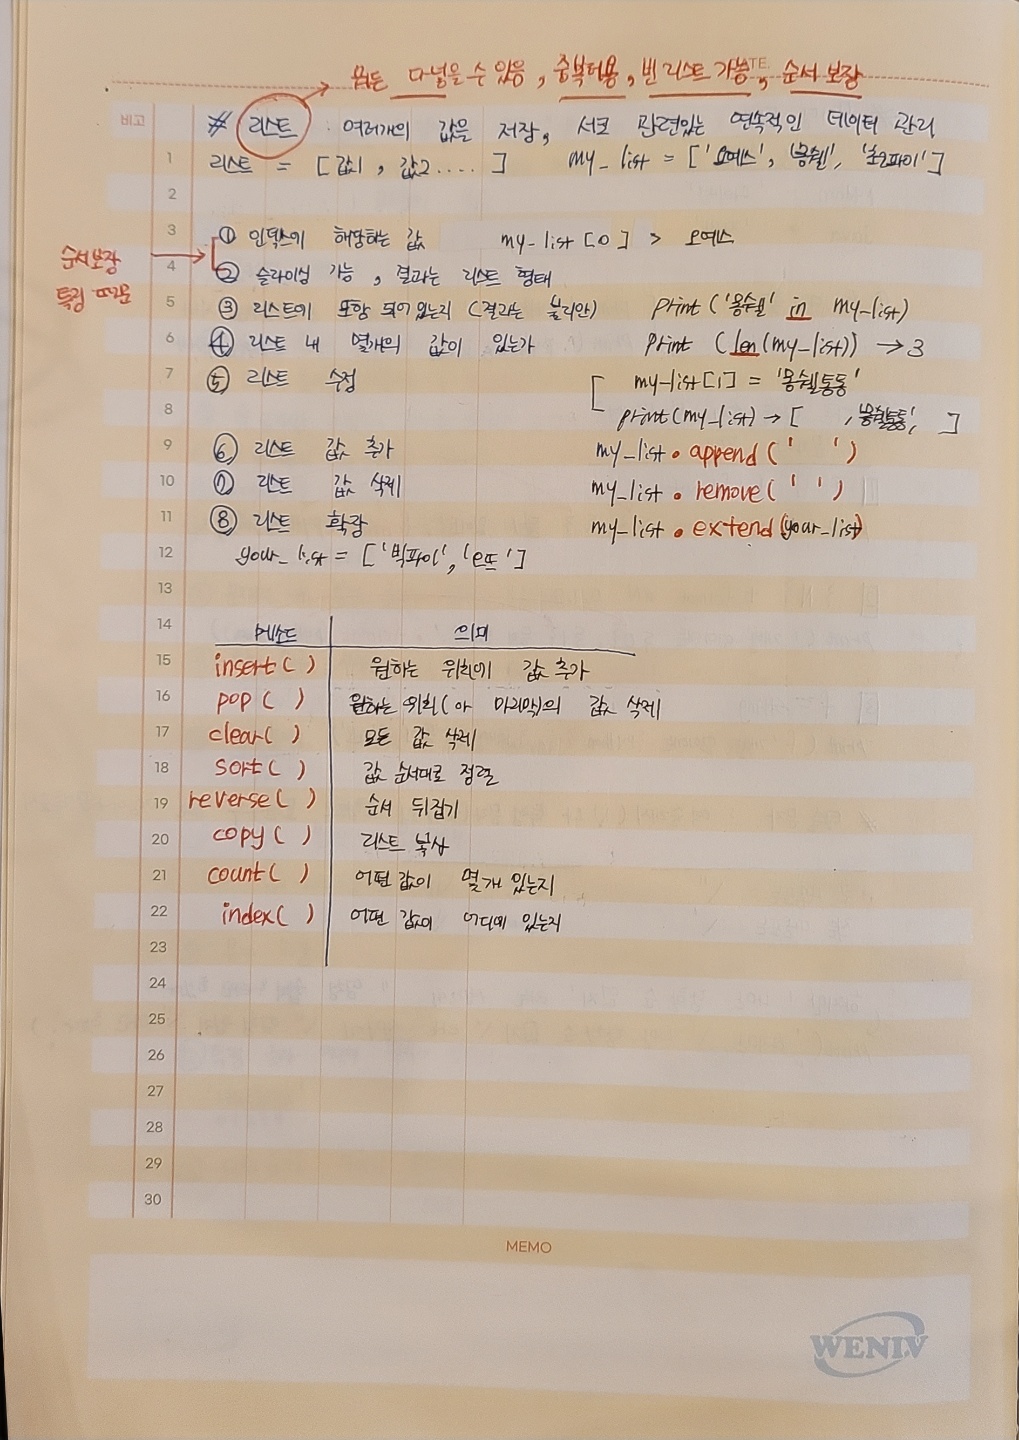 뭐든 다넣을 수 있음, 중복허용, 빈 리스트 가능, 순서 보장
비고 # 리스트 : 여러개의 값을 저장, 서로 관련있는 연속적인 데이터 관리
1 리스트 = [값1, 값2.....] my_list = ['오예스', '몽쉘', '초코파이']
2
3 ① 인덱스에 해당하는 값 my_list[0] > 오예스
순서보장
4 ② 슬라이싱 가능, 결과는 리스트 형태
특징 때문
5 ③ 리스트에 포함 되어있는지 (결과는 불리안) print('몽쉘' in my_list)
6 ④ 리스트 내 몇개의 값이 있는가 print(len(my_list)) → 3
7 ⑤ 리스트 수정 my_list[1] = '몽쉘통통'
8 print(my_list) → [ , '몽쉘통통', ]
9 ⑥ 리스트 값 추가 my_list.append(' ')
10 ⑦ 리스트 값 삭제 my_list.remove(' ')
11 ⑧ 리스트 확장 my_list.extend(your_list)
12 your_list = ['빅파이', ']
13
14 메소드 의미
15 insert( ) 원하는 위치에 값 추가
16 pop( ) 원하는 위치(or 마지막)의 값 삭제
17 clear( ) 모든 값 삭제
18 sort( ) 값 순서대로 정렬
19 reverse( ) 순서 뒤집기
20 copy( ) 리스트 복사
21 count( ) 어떤 값이 몇개 있는지
22 index( ) 어떤 값이 어디에 있는지
23
24
25
26
27
28
29
30
MEMO
WENIV